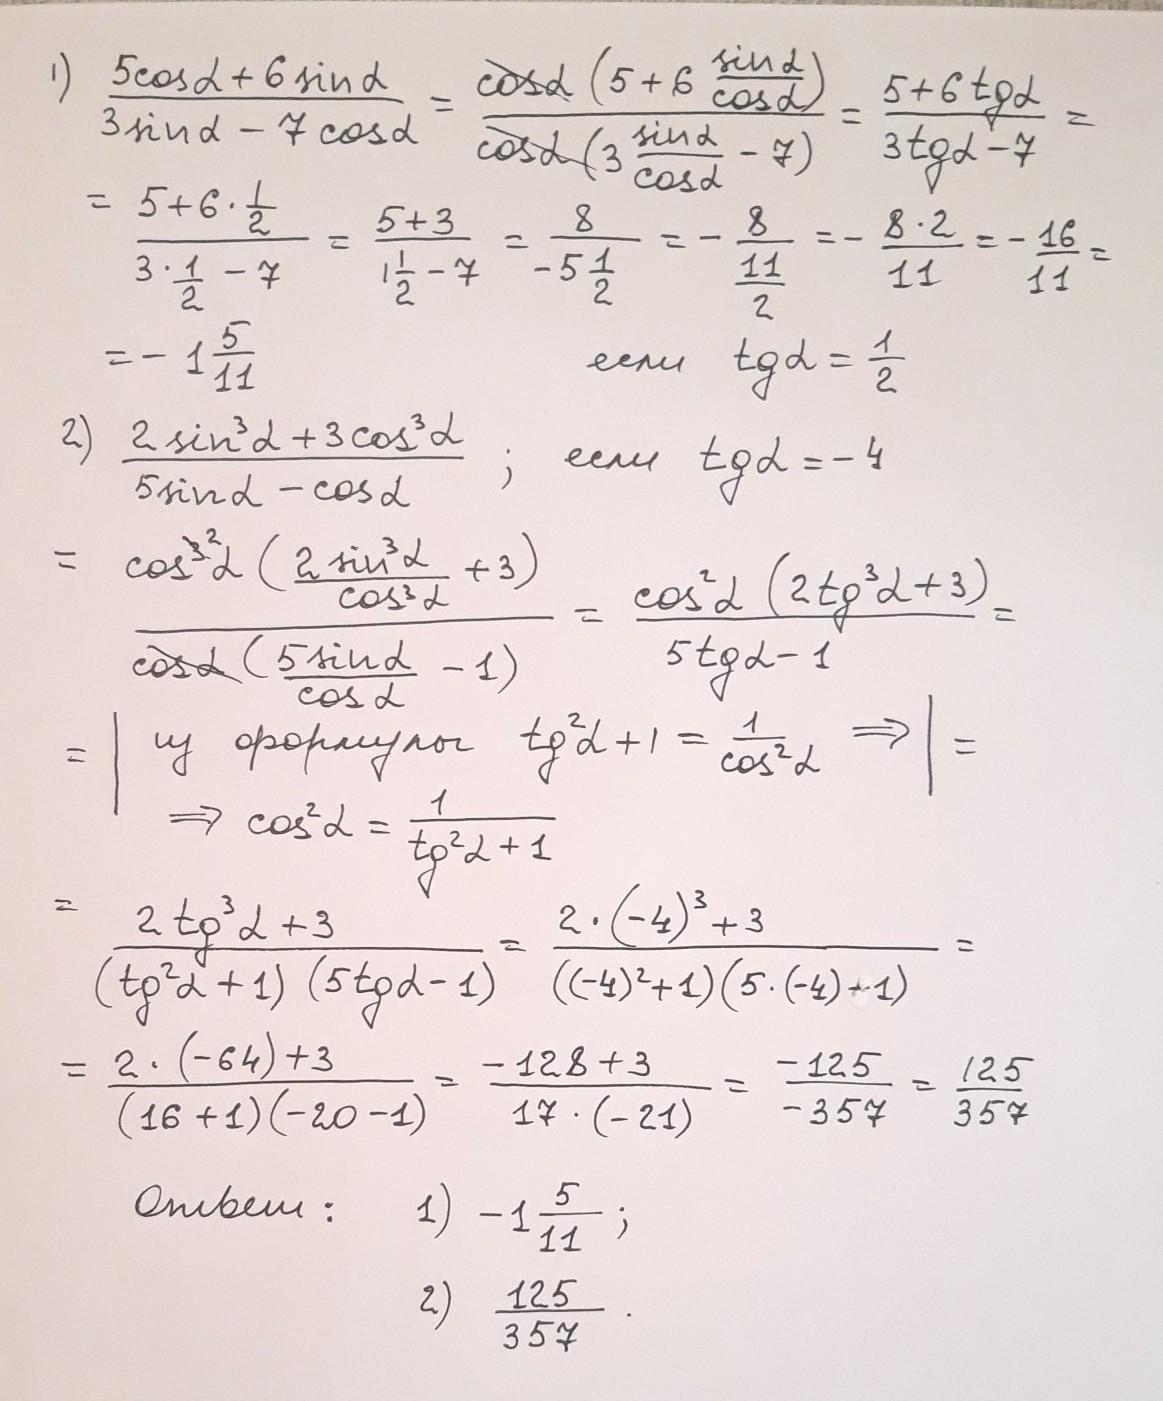 1) (5cosα + 6sinα)/(3sinα − 7cosα) = cosα(5 + 6 sinα/cosα)/(cosα(3 sinα/cosα − 7)) = (5 + 6tgα)/(3tgα − 7) =
= (5 + 6·1/2)/(3·1/2 − 7) = (5+3)/(1 1/2 − 7) = 8/(−5 1/2) = − 8/(11/2) = − (8·2)/11 = − 16/11 =
= − 1 5/11 если tgα = 1/2
2) (2sin³α + 3cos³α)/(5sinα − cosα) ; если tgα = −4
= cos³²α(2sin³α/cos³α + 3)/(cosα(5sinα/cosα − 1)) = cos²α(2tg³α + 3)/(5tgα − 1) =
= | из формулы tg²α + 1 = 1/cos²α ⇒ | =
⇒ cos²α = 1/(tg²α + 1)
= (2tg³α + 3)/((tg²α + 1)(5tgα − 1)) = (2·(−4)³ + 3)/(((−4)² + 1)(5·(−4) − 1)) =
= (2·(−64) + 3)/((16 + 1)(−20 − 1)) = (−128 + 3)/(17·(−21)) = −125/−357 = 125/357
Ответ: 1) −1 5/11 ;
2) 125/357 .